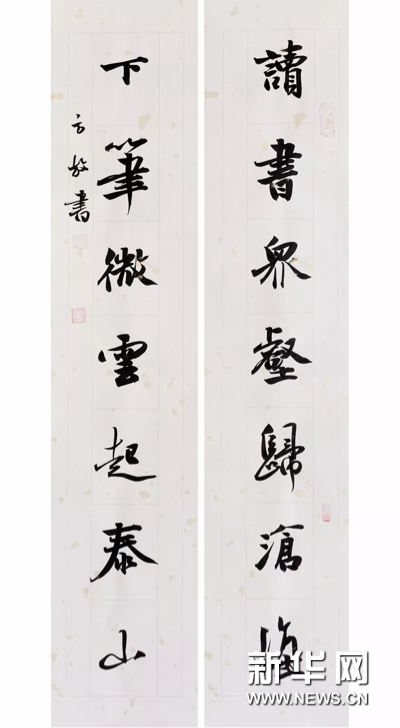 讀書眾壑歸滄海
下筆微雲起泰山
方書
新华网
WWW.NEWS.CN